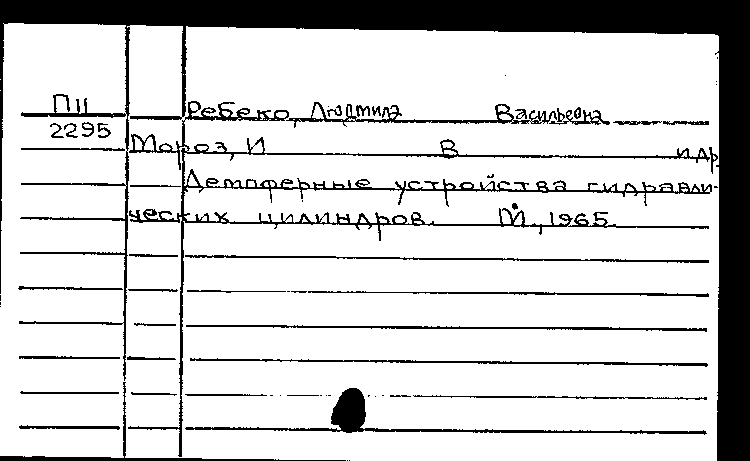 П11 Ребеко, Людмила Васильевна
2295 Мороз, И В и др.
Демпферные устройства гидравли-
ческих цилиндров. М., 1965.